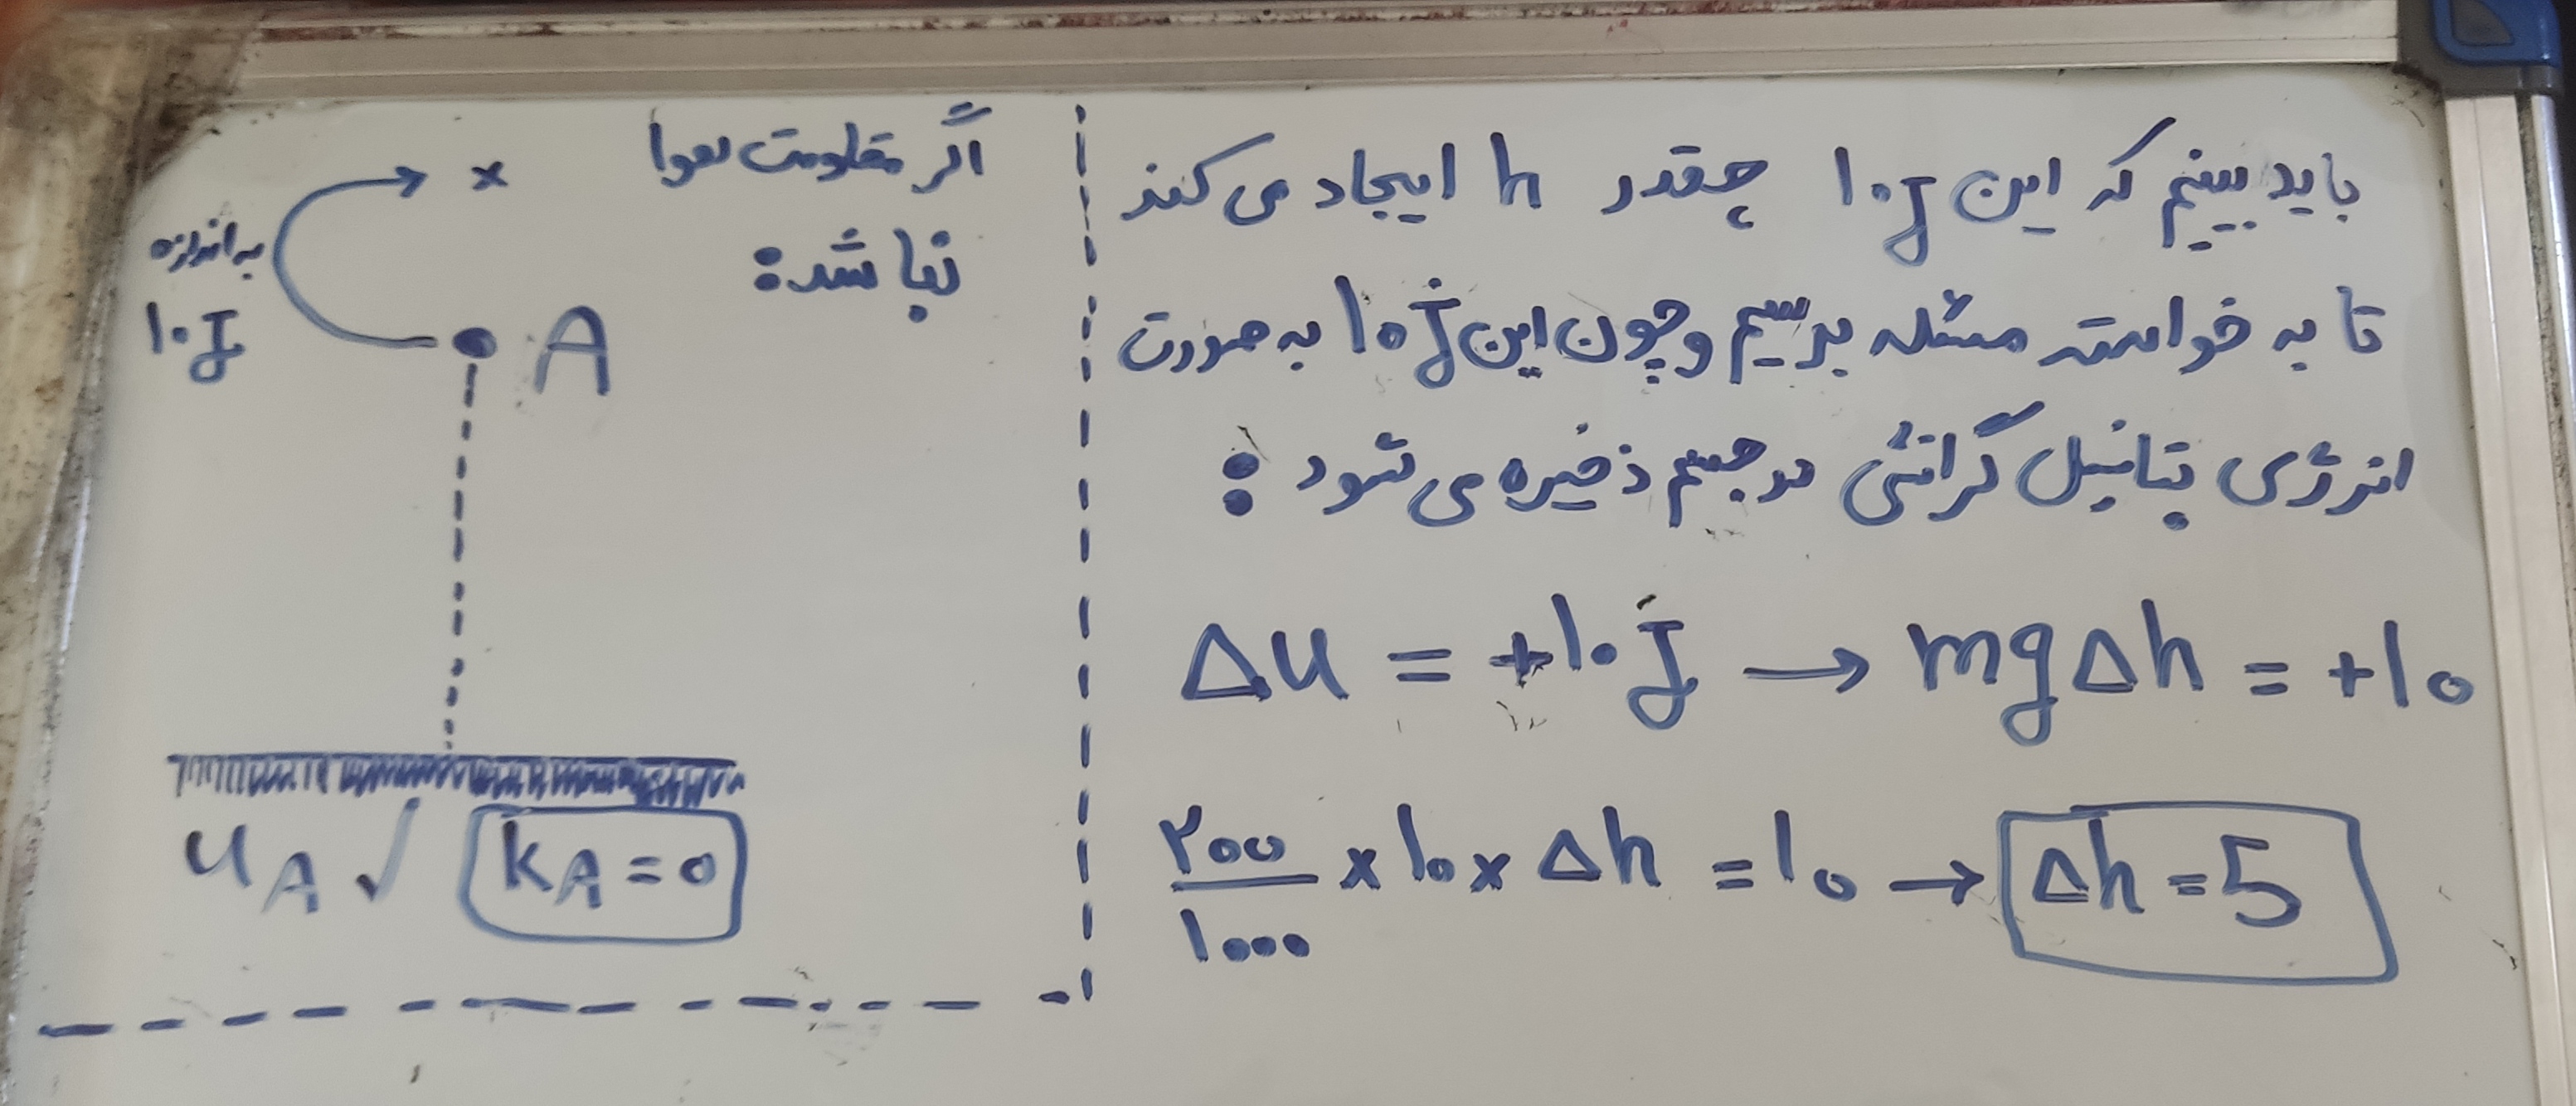 باید ببینیم که این ۱۰J چقدر h ایجاد می کند
تا به خواسته مسئله برسیم و چون این ۱۰J به صورت
انرژی پتانسیل گرانشی در جسم ذخیره می شود :
ΔU = +۱۰J → mgΔh = +۱۰
۲۰۰/۱۰۰۰ × ۱۰ × Δh = ۱۰ → Δh = 5
اگر مقاومت هوا
نباشد:
×
به اندازه
۱۰J
A
U_A ✓ K_A = 0